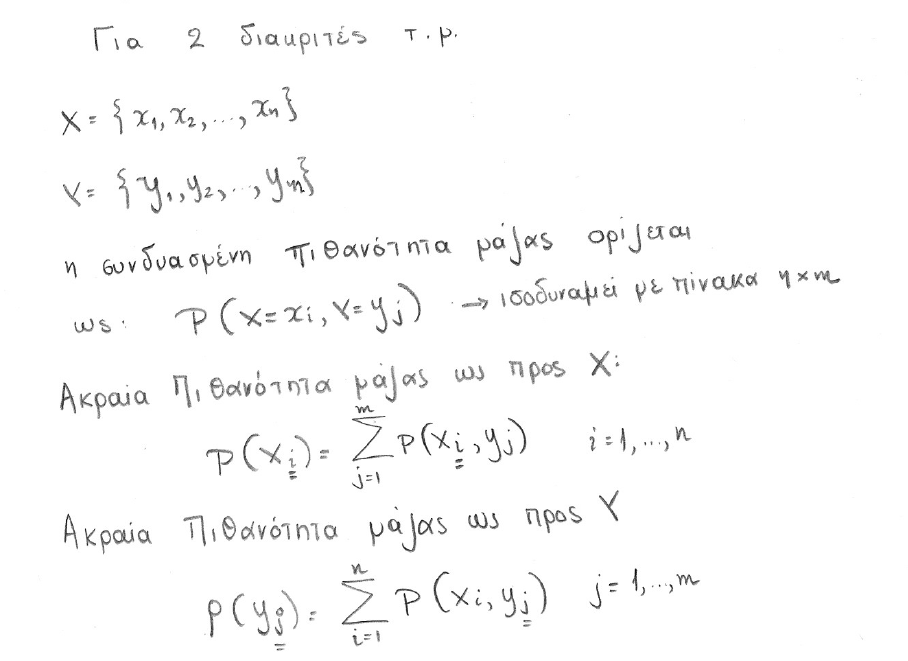 Για 2 διακριτές τ.ρ.
X = {x₁, x₂, ..., xₙ}
Y = {y₁, y₂, ..., yₘ}
η συνδυασμένη πιθανότητα μάζας ορίζεται
ως: P(X=xᵢ, Y=yⱼ) → ισοδυναμεί με πίνακα n×m
Ακραία Πιθανότητα μάζας ως προς X:
P(xᵢ) = ∑_{j=1}^{m} P(xᵢ, yⱼ) i=1,...,n
Ακραία Πιθανότητα μάζας ως προς Y
P(yⱼ) = ∑_{i=1}^{n} P(xᵢ, yⱼ) j=1,...,m